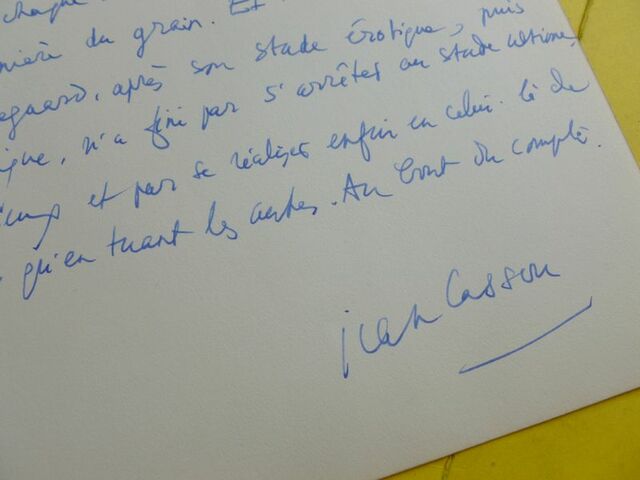 chaque
du grain. Et
après son stade érotique, puis
n'a fini par s'arrêter au stade ultime
et par se réaliser enfin en celui-là de
qu'en tuant les autres. Au bout du compte.
Jean Cassou